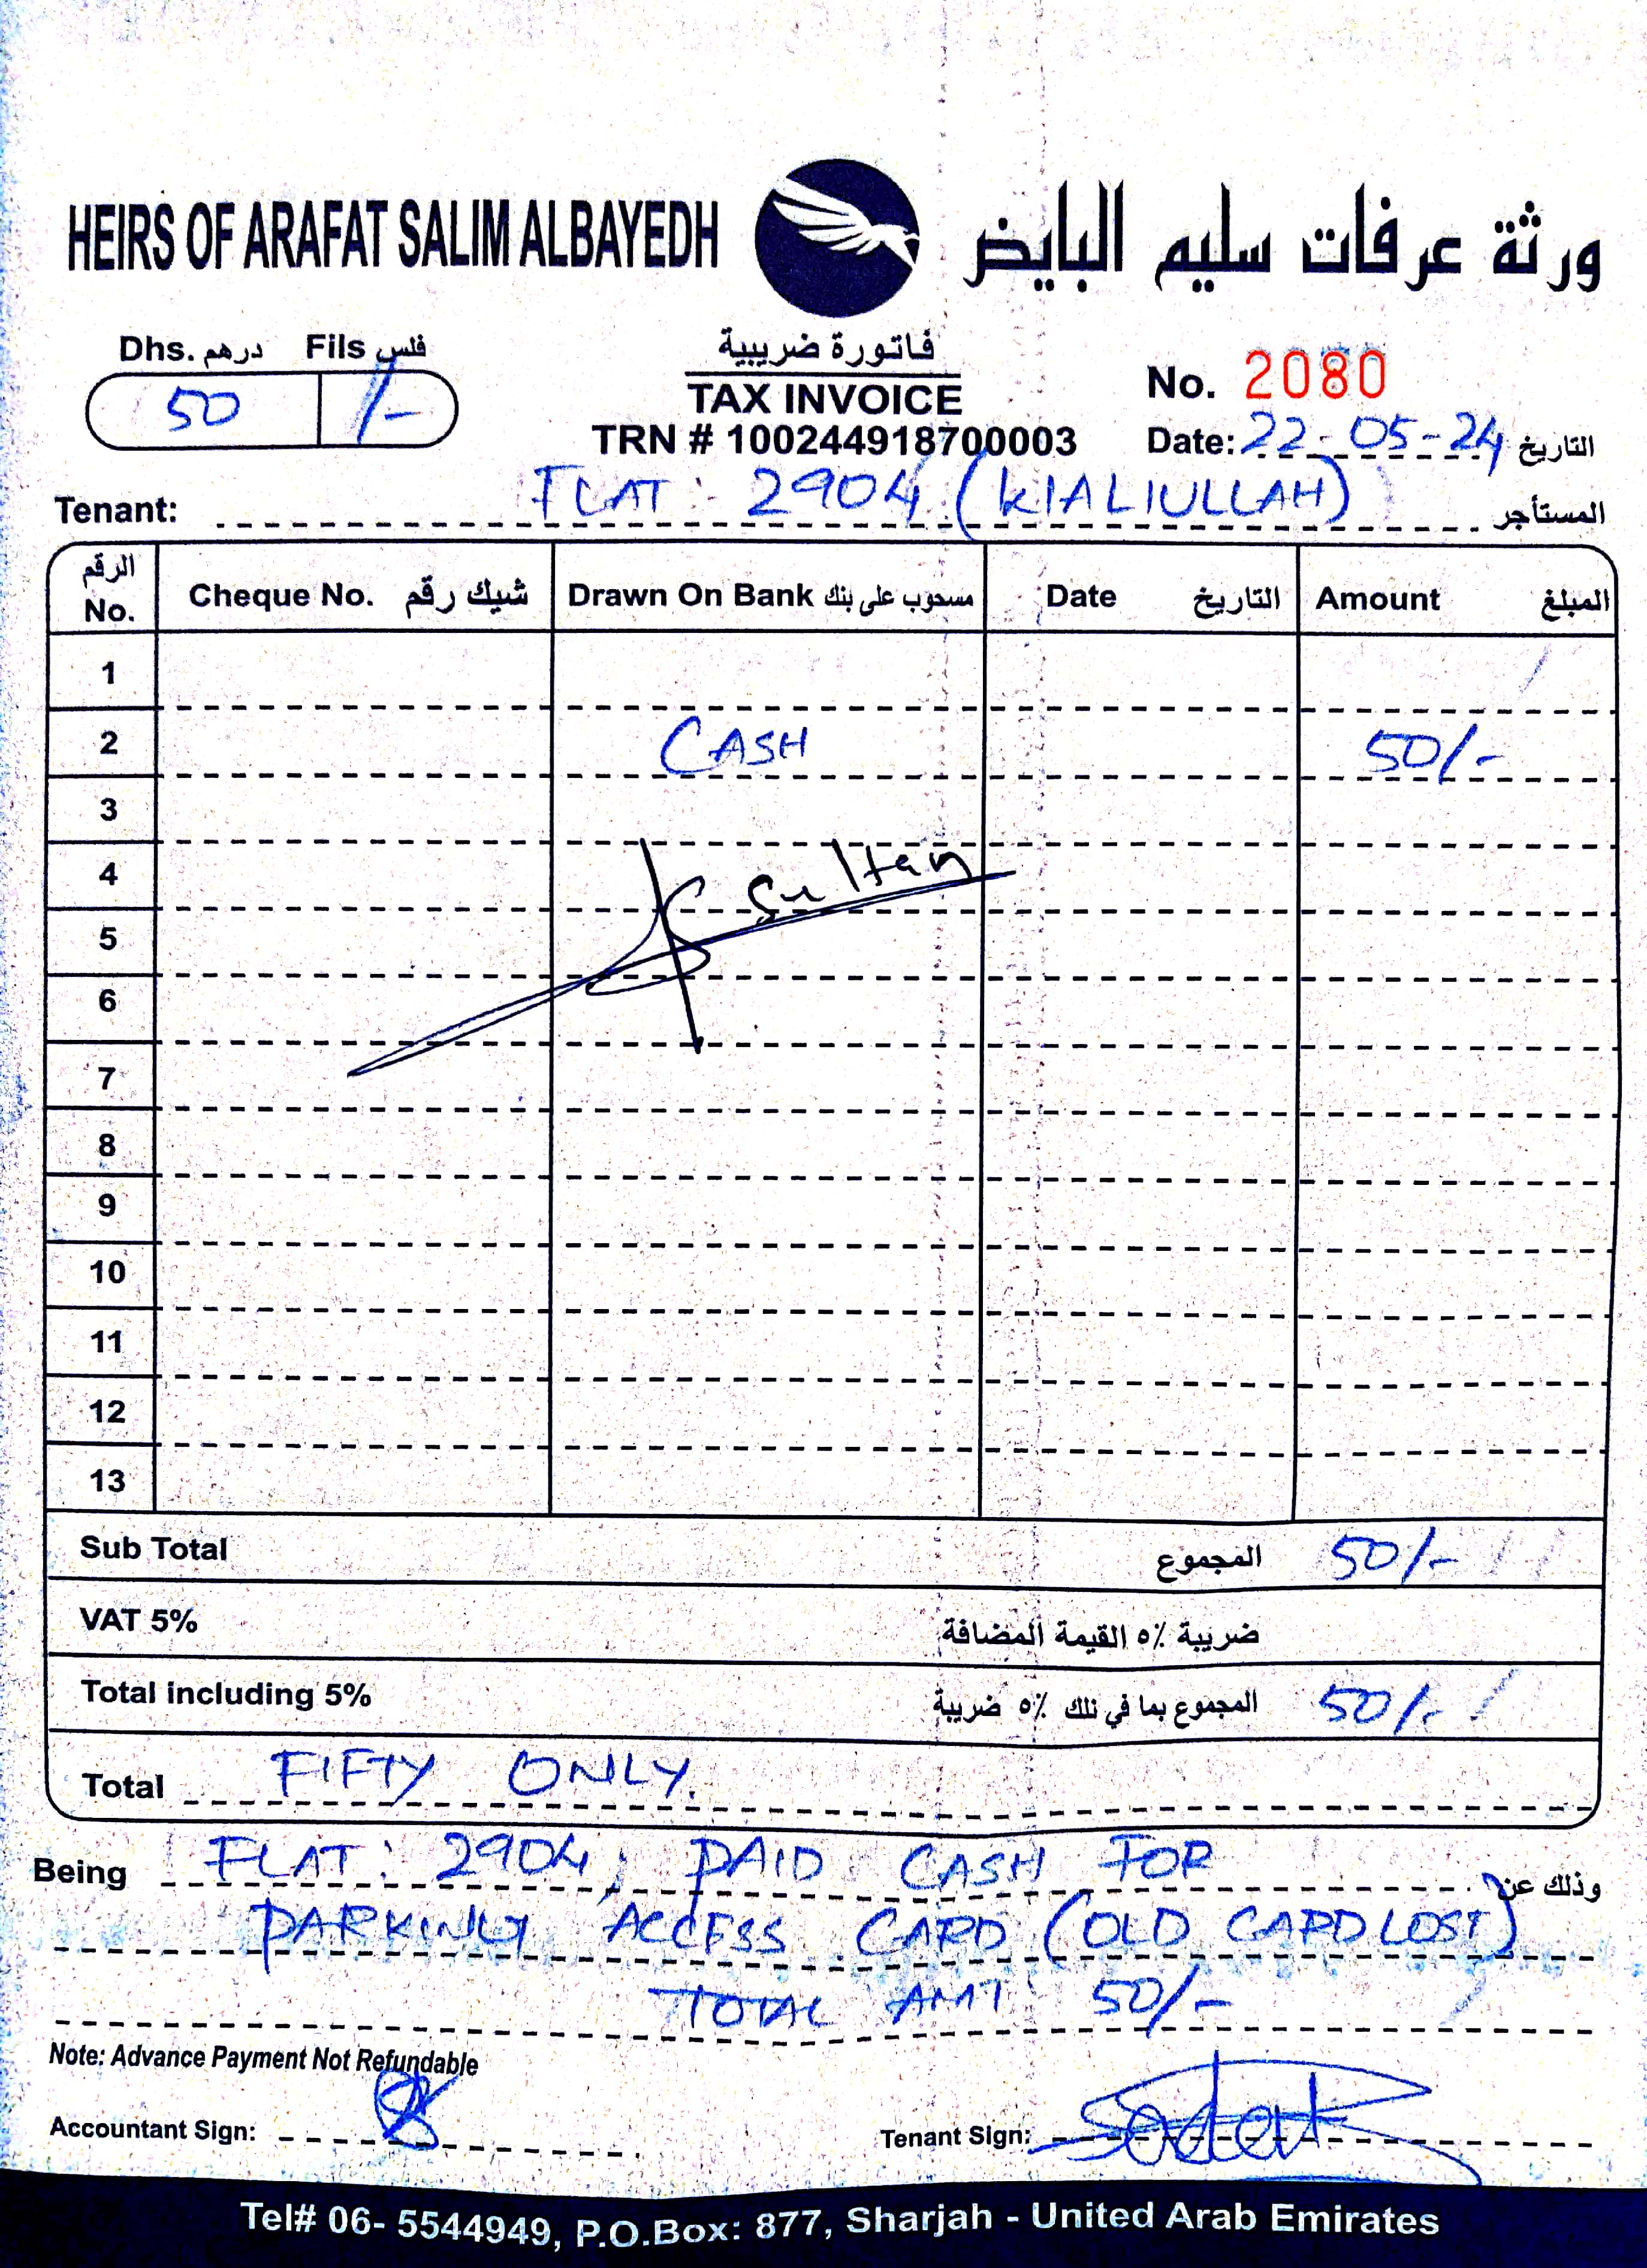 HEIRS OF ARAFAT SALIM ALBAYEDH ورثة عرفات سليم البايض
Dhs. درهم Fils فلس
50 /-
فاتورة ضريبية
TAX INVOICE
TRN # 100244918700003
No. 2080
Date: 22-05-24 التاريخ
Tenant: FLAT: 2904 (KIALIULLAH) المستأجر
الرقم No. Cheque No. شيك رقم Drawn On Bank مسحوب على بنك Date التاريخ Amount المبلغ
1
2 CASH 50/-
3
4 Sultan
5
6
7
8
9
10
11
12
13
Sub Total المجموع 50/-
VAT 5% ضريبة ٥٪ القيمة المضافة
Total including 5% المجموع بما في ذلك ٥٪ ضريبة 50/-
Total FIFTY ONLY.
Being FLAT: 2904, PAID CASH FOR وذلك عن
PARKING ACCESS CARD (OLD CARD LOST)
TOTAL AMT 50/-
Note: Advance Payment Not Refundable
Accountant Sign: Tenant Sign:
Tel# 06- 5544949, P.O.Box: 877, Sharjah - United Arab Emirates